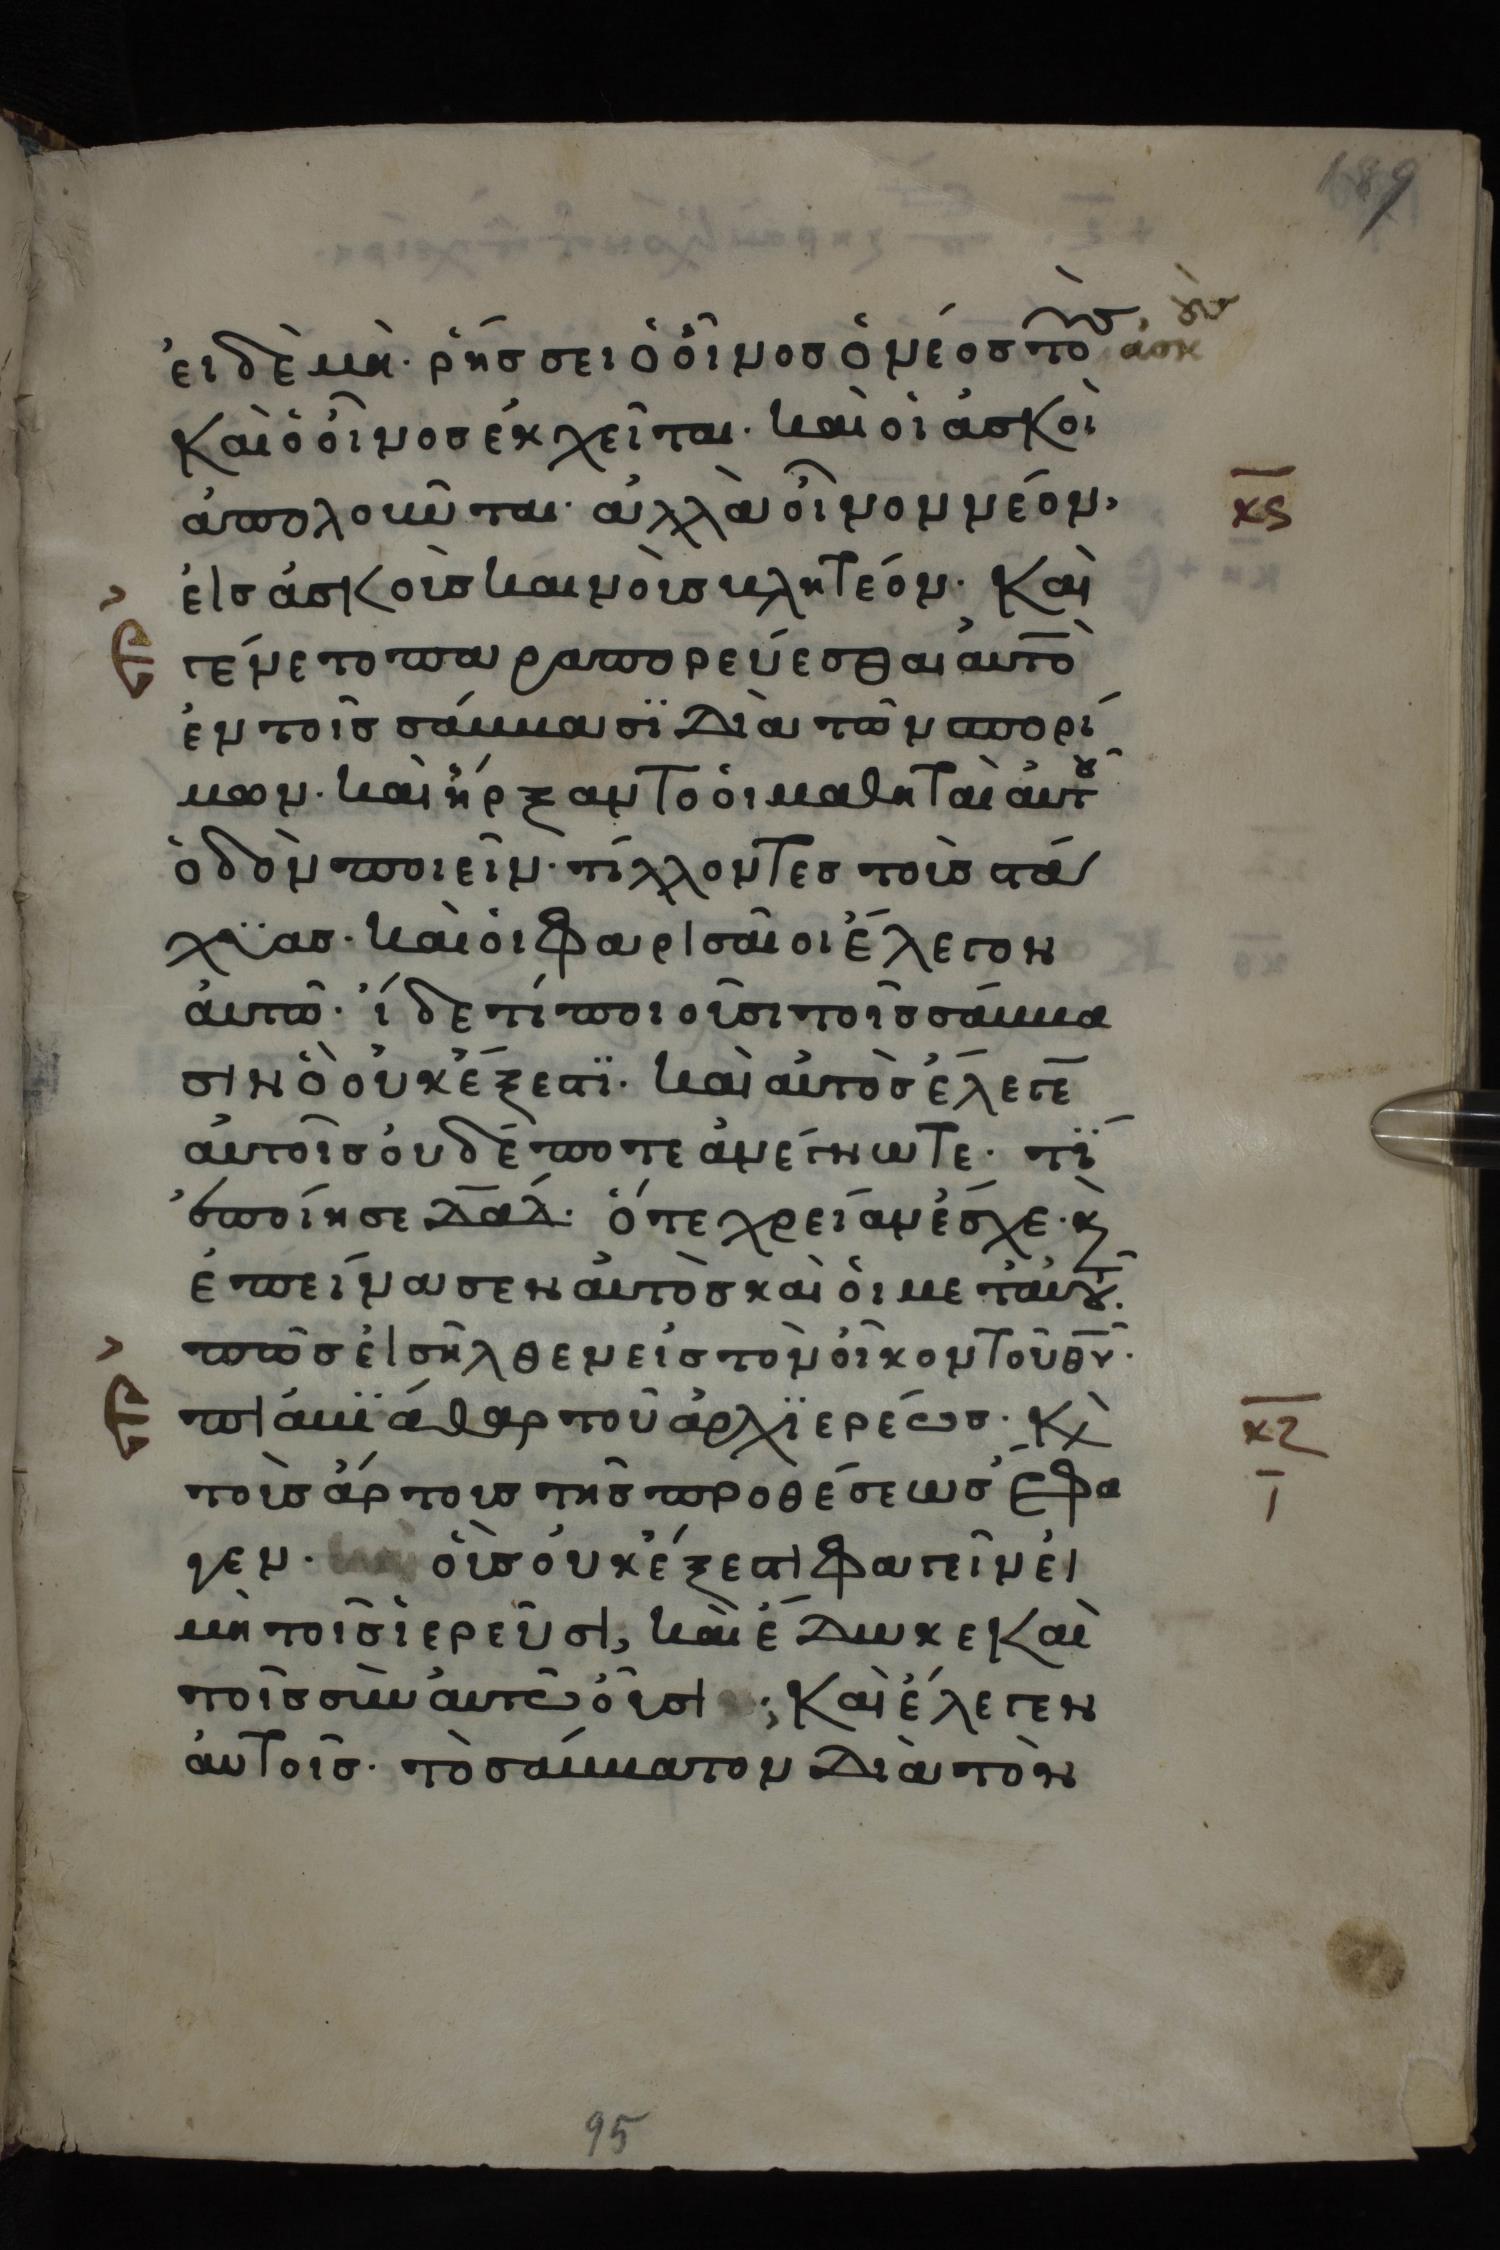 189
εἰ δὲ μὴ· ῥήσσει ὁ οἶνος ὁ νέος τοὺς ἀσκοὺς
καὶ ὁ οἶνος ἐκχεῖται· καὶ οἱ ἀσκοὶ
ἀπολοῦνται· ἀλλὰ οἶνον νέον,
κϛ
εἰς ἀσκοὺς καινοὺς βλητέον· Καὶ
ἐγένετο παραπορεύεσθαι αὐτὸ
ἐν τοῖς σάββασϊ διὰ τῶν σπορί
μων· καὶ ἤρξαντο οἱ μαθηταὶ αὐτοῦ
ὁδὸν ποιεῖν· τίλλοντες τοὺς στά
χϋας· καὶ οἱ φαρισαῖοι ἔλεγον
αὐτῶ· ἴδε τί ποιοῦσι τοῖς σάββα
σιν ὃ οὐκ ἔξεστϊ· καὶ αὐτὸς ἔλεγε
αὐτοῖς οὐδέποτε ἀνέγνωτε· τΐ
ἐποίησε δαδ· ὅτε χρείαν ἔσχε· κ
ἐπείνασεν αὐτὸς καὶ οἱ μετ' αὐτοῦ·
πῶς εἰσῆλθεν εἰς τὸν οἶκον τοῦ θυ·
ἐπὶ ἀβϊάθαρ τοῦ ἀρχϊερέως· κ
κζ
ι
τοὺς ἄρτους τῆς προθέσεως ἔφα
γεν· οὓς οὐκ ἔξεστι φαγεῖν εἰ
μὴ τοῖς ἱερεῦσι, καὶ ἔδωκε καὶ
τοῖς σὺν αὐτῶ οὖσι; Καὶ ἔλεγεν
αὐτοῖς· τὸ σάββατον διὰ τὸν
95